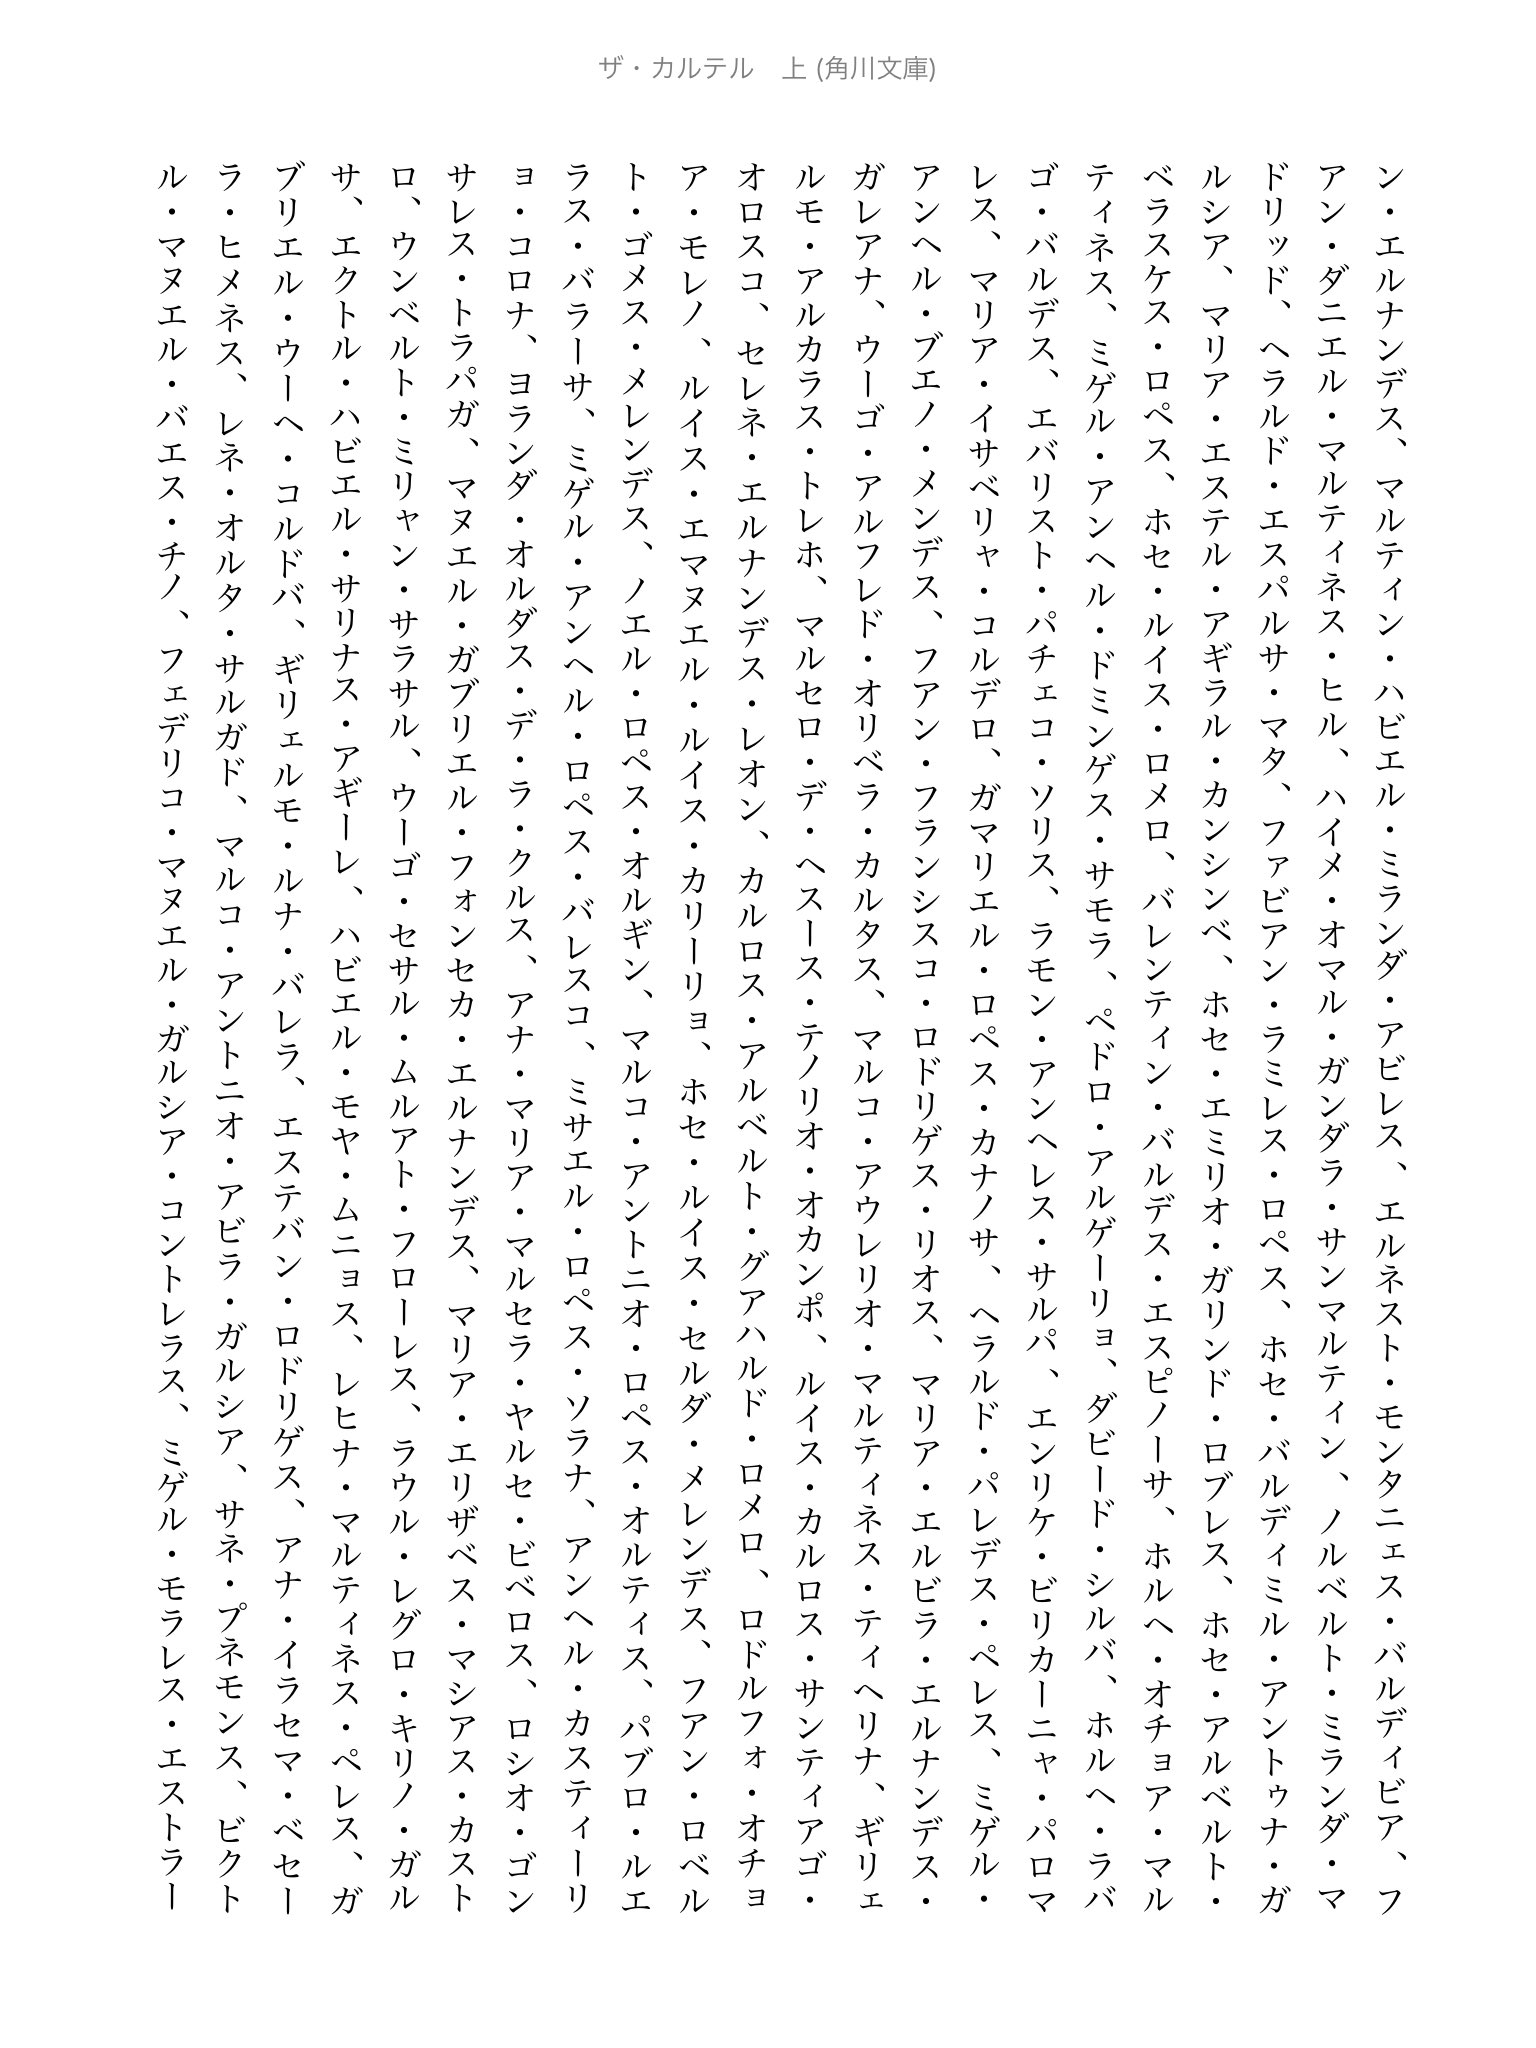 ザ・カルテル　上 (角川文庫)
ン・エルナンデス、マルティン・ハビエル・ミランダ・アビレス、エルネスト・モンタニェス・バルディビア、フ
アン・ダニエル・マルティネス・ヒル、ハイメ・オマル・ガンダラ・サンマルティン、ノルベルト・ミランダ・マ
ドリッド、ヘラルド・エスパルサ・マタ、ファビアン・ラミレス・ロペス、ホセ・バルディミル・アントゥナ・ガ
ルシア、マリア・エステル・アギラル・カンシンベ、ホセ・エミリオ・ガリンド・ロブレス、ホセ・アルベルト・
ベラスケス・ロペス、ホセ・ルイス・ロメロ、バレンティン・バルデス・エスピノーサ、ホルヘ・オチョア・マル
ティネス、ミゲル・アンヘル・ドミンゲス・サモラ、ペドロ・アルゲーリョ、ダビード・シルバ、ホルヘ・ラバ
ゴ・バルデス、エバリスト・パチェコ・ソリス、ラモン・アンヘレス・サルパ、エンリケ・ビリカーニャ・パロマ
レス、マリア・イサベリャ・コルデロ、ガマリエル・ロペス・カナノサ、ヘラルド・パレデス・ペレス、ミゲル・
アンヘル・ブエノ・メンデス、フアン・フランシスコ・ロドリゲス・リオス、マリア・エルビラ・エルナンデス・
ガレアナ、ウーゴ・アルフレド・オリベラ・カルタス、マルコ・アウレリオ・マルティネス・ティヘリナ、ギリェ
ルモ・アルカラス・トレホ、マルセロ・デ・ヘスース・テノリオ・オカンポ、ルイス・カルロス・サンティアゴ・
オロスコ、セレネ・エルナンデス・レオン、カルロス・アルベルト・グアハルド・ロメロ、ロドルフォ・オチョ
ア・モレノ、ルイス・エマヌエル・ルイス・カリーリョ、ホセ・ルイス・セルダ・メレンデス、フアン・ロベル
ト・ゴメス・メレンデス、ノエル・ロペス・オルギン、マルコ・アントニオ・ロペス・オルティス、パブロ・ルエ
ラス・バラーサ、ミゲル・アンヘル・ロペス・バレスコ、ミサエル・ロペス・ソラナ、アンヘル・カスティーリ
ョ・コロナ、ヨランダ・オルダス・デ・ラ・クルス、アナ・マリア・マルセラ・ヤルセ・ビベロス、ロシオ・ゴン
サレス・トラパガ、マヌエル・ガブリエル・フォンセカ・エルナンデス、マリア・エリザベス・マシアス・カスト
ロ、ウンベルト・ミリャン・サラサル、ウーゴ・セサル・ムルアト・フローレス、ラウル・レグロ・キリノ・ガル
サ、エクトル・ハビエル・サリナス・アギーレ、ハビエル・モヤ・ムニョス、レヒナ・マルティネス・ペレス、ガ
ブリエル・ウーヘ・コルドバ、ギリェルモ・ルナ・バレラ、エステバン・ロドリゲス、アナ・イラセマ・ベセー
ラ・ヒメネス、レネ・オルタ・サルガド、マルコ・アントニオ・アビラ・ガルシア、サネ・プネモンス、ビクト
ル・マヌエル・バエス・チノ、フェデリコ・マヌエル・ガルシア・コントレラス、ミゲル・モラレス・エストラー